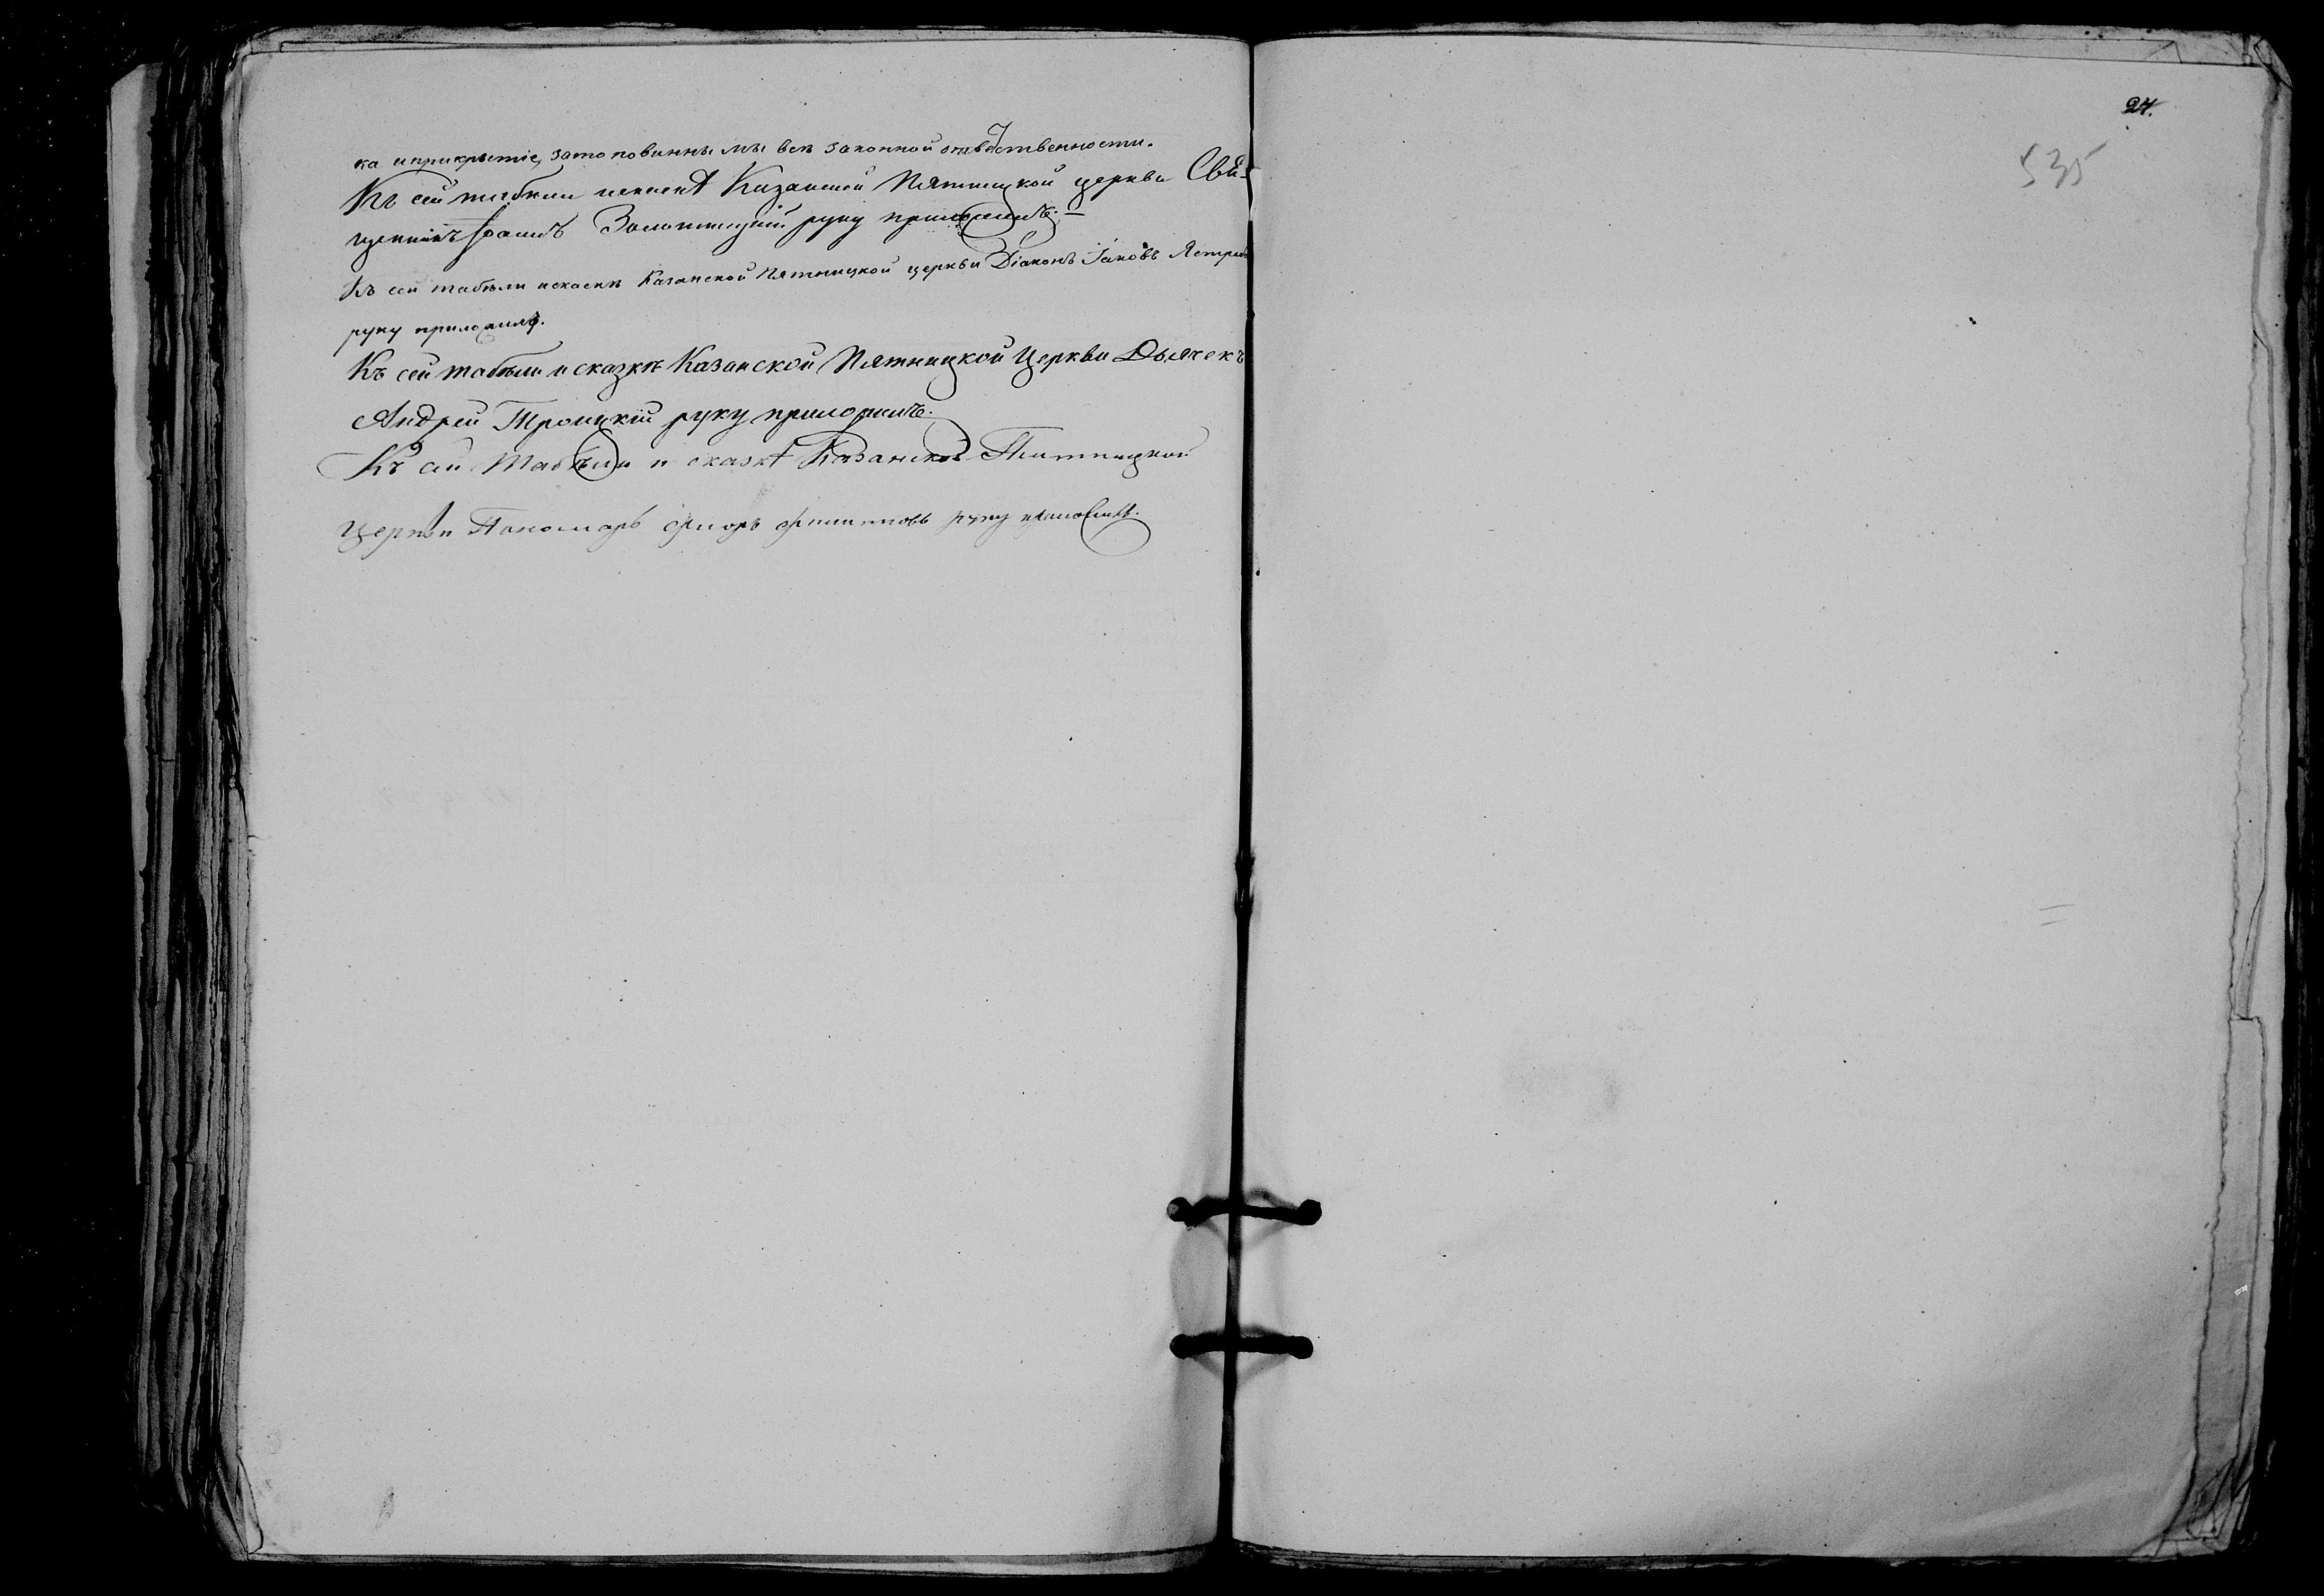 ка и прикрытіе, зато повинны мы всѣ законной отвѣтственности.
Къ сей табѣли и сказкѣ Казанской Пятницкой церкви Свя-
щенникъ Іоаннъ Золотницкій руку приложилъ. —
Къ сей табѣли и сказкѣ Казанской Пятницкой церкви Діаконъ Іаковъ
руку приложилъ.
Къ сей табѣли и сказкѣ Казанской Пятницкой Церкви Дьячекъ
Андрей Троицкій руку приложилъ.
Къ сей Табѣли и сказкѣ Казанской Пятницкой
Церкви Пономарь руку приложилъ.
24.
535